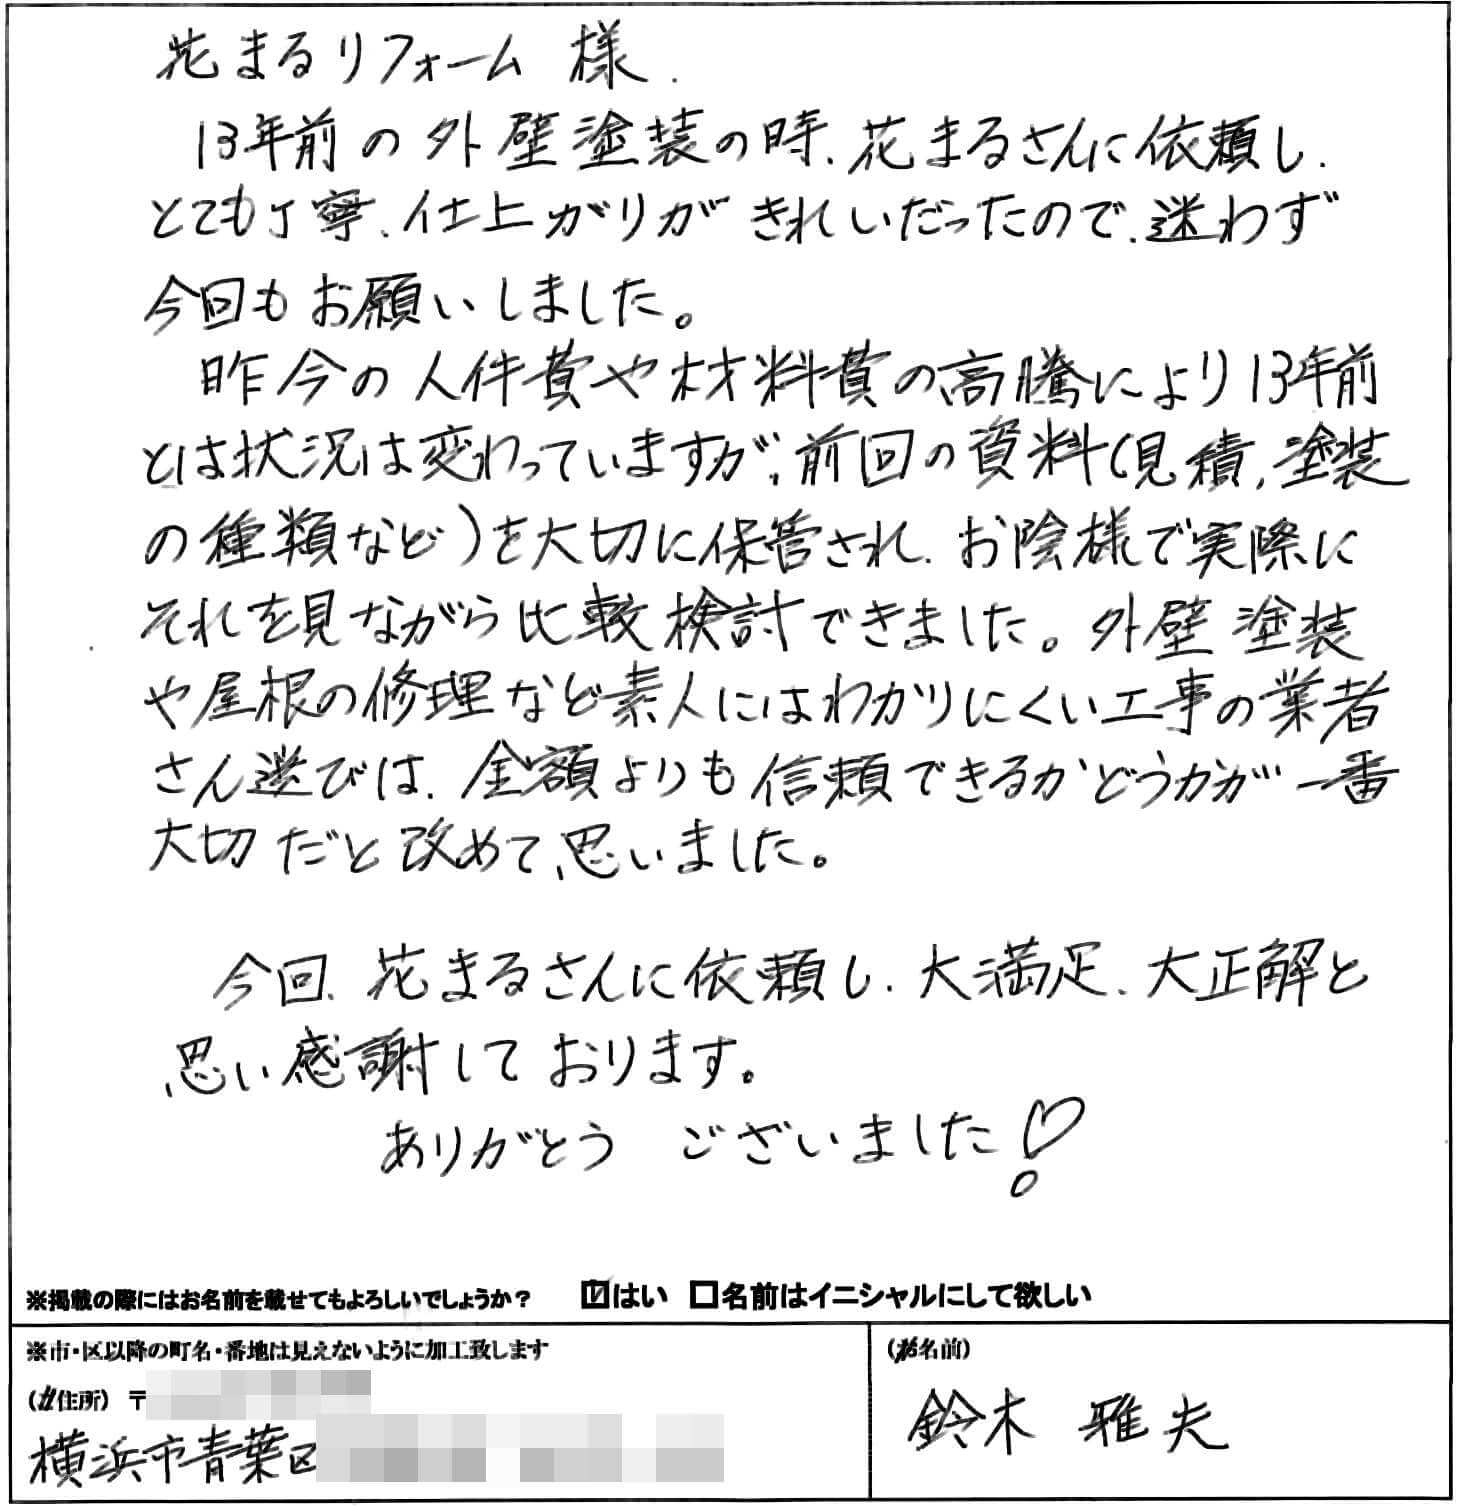 花まるリフォーム 様.
13年前の外壁塗装の時、花まるさんに依頼し、
とても丁寧、仕上がりがきれいだったので、迷わず
今回もお願いしました。
昨今の人件費や材料費の高騰により13年前
とは状況は変わっていますが、前回の資料(見積、塗装
の種類など)を大切に保管され、お陰様で実際に
それを見ながら比較検討できました。外壁塗装
や屋根の修理など素人にはわかりにくい工事の業者
さん選びは、金額よりも信頼できるかどうかが一番
大切だと改めて思いました。
今回、花まるさんに依頼し、大満足、大正解と
思い感謝しております。
ありがとう ございました♡
※掲載の際にはお名前を載せてもよろしいでしょうか? ☑はい □名前はイニシャルにして欲しい
※市・区以降の町名・番地は見えないように加工致します
(ご住所) 〒
横浜市青葉区
(お名前)
鈴木 雅夫